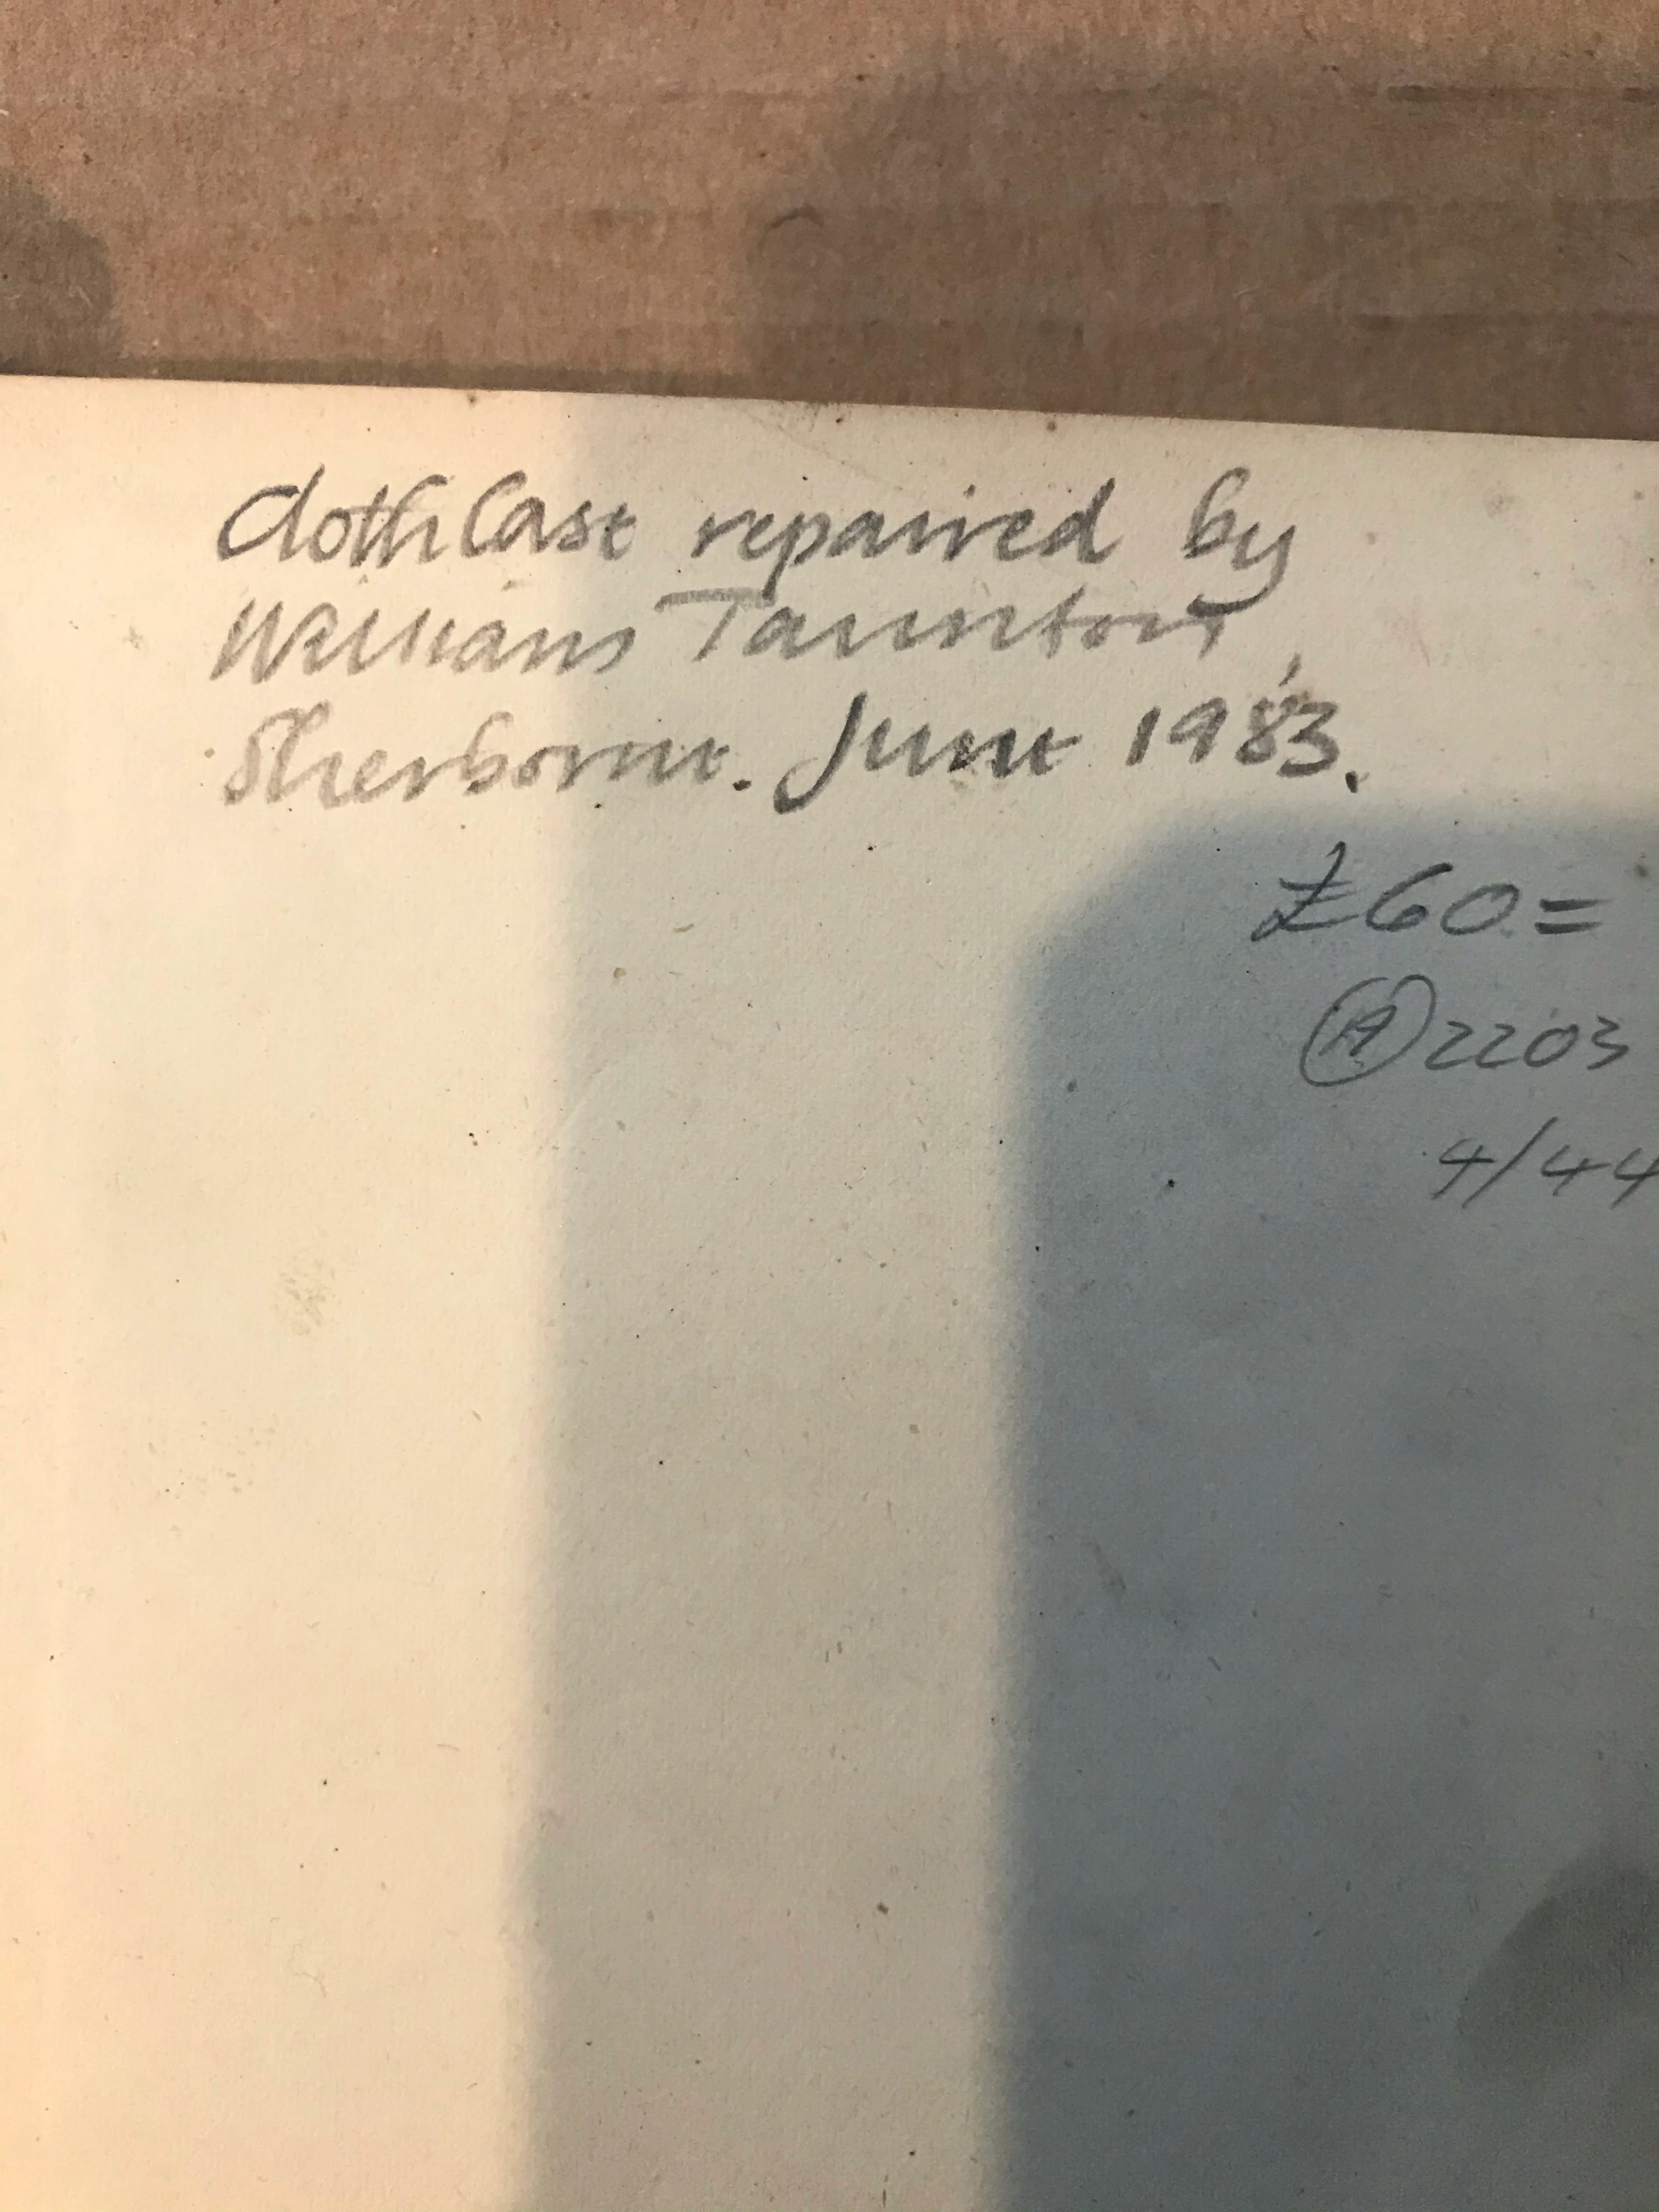 Cloth Case repaired by
William Taunton,
Sherborne. June 1983.
£60=
(A) 2203
4/44